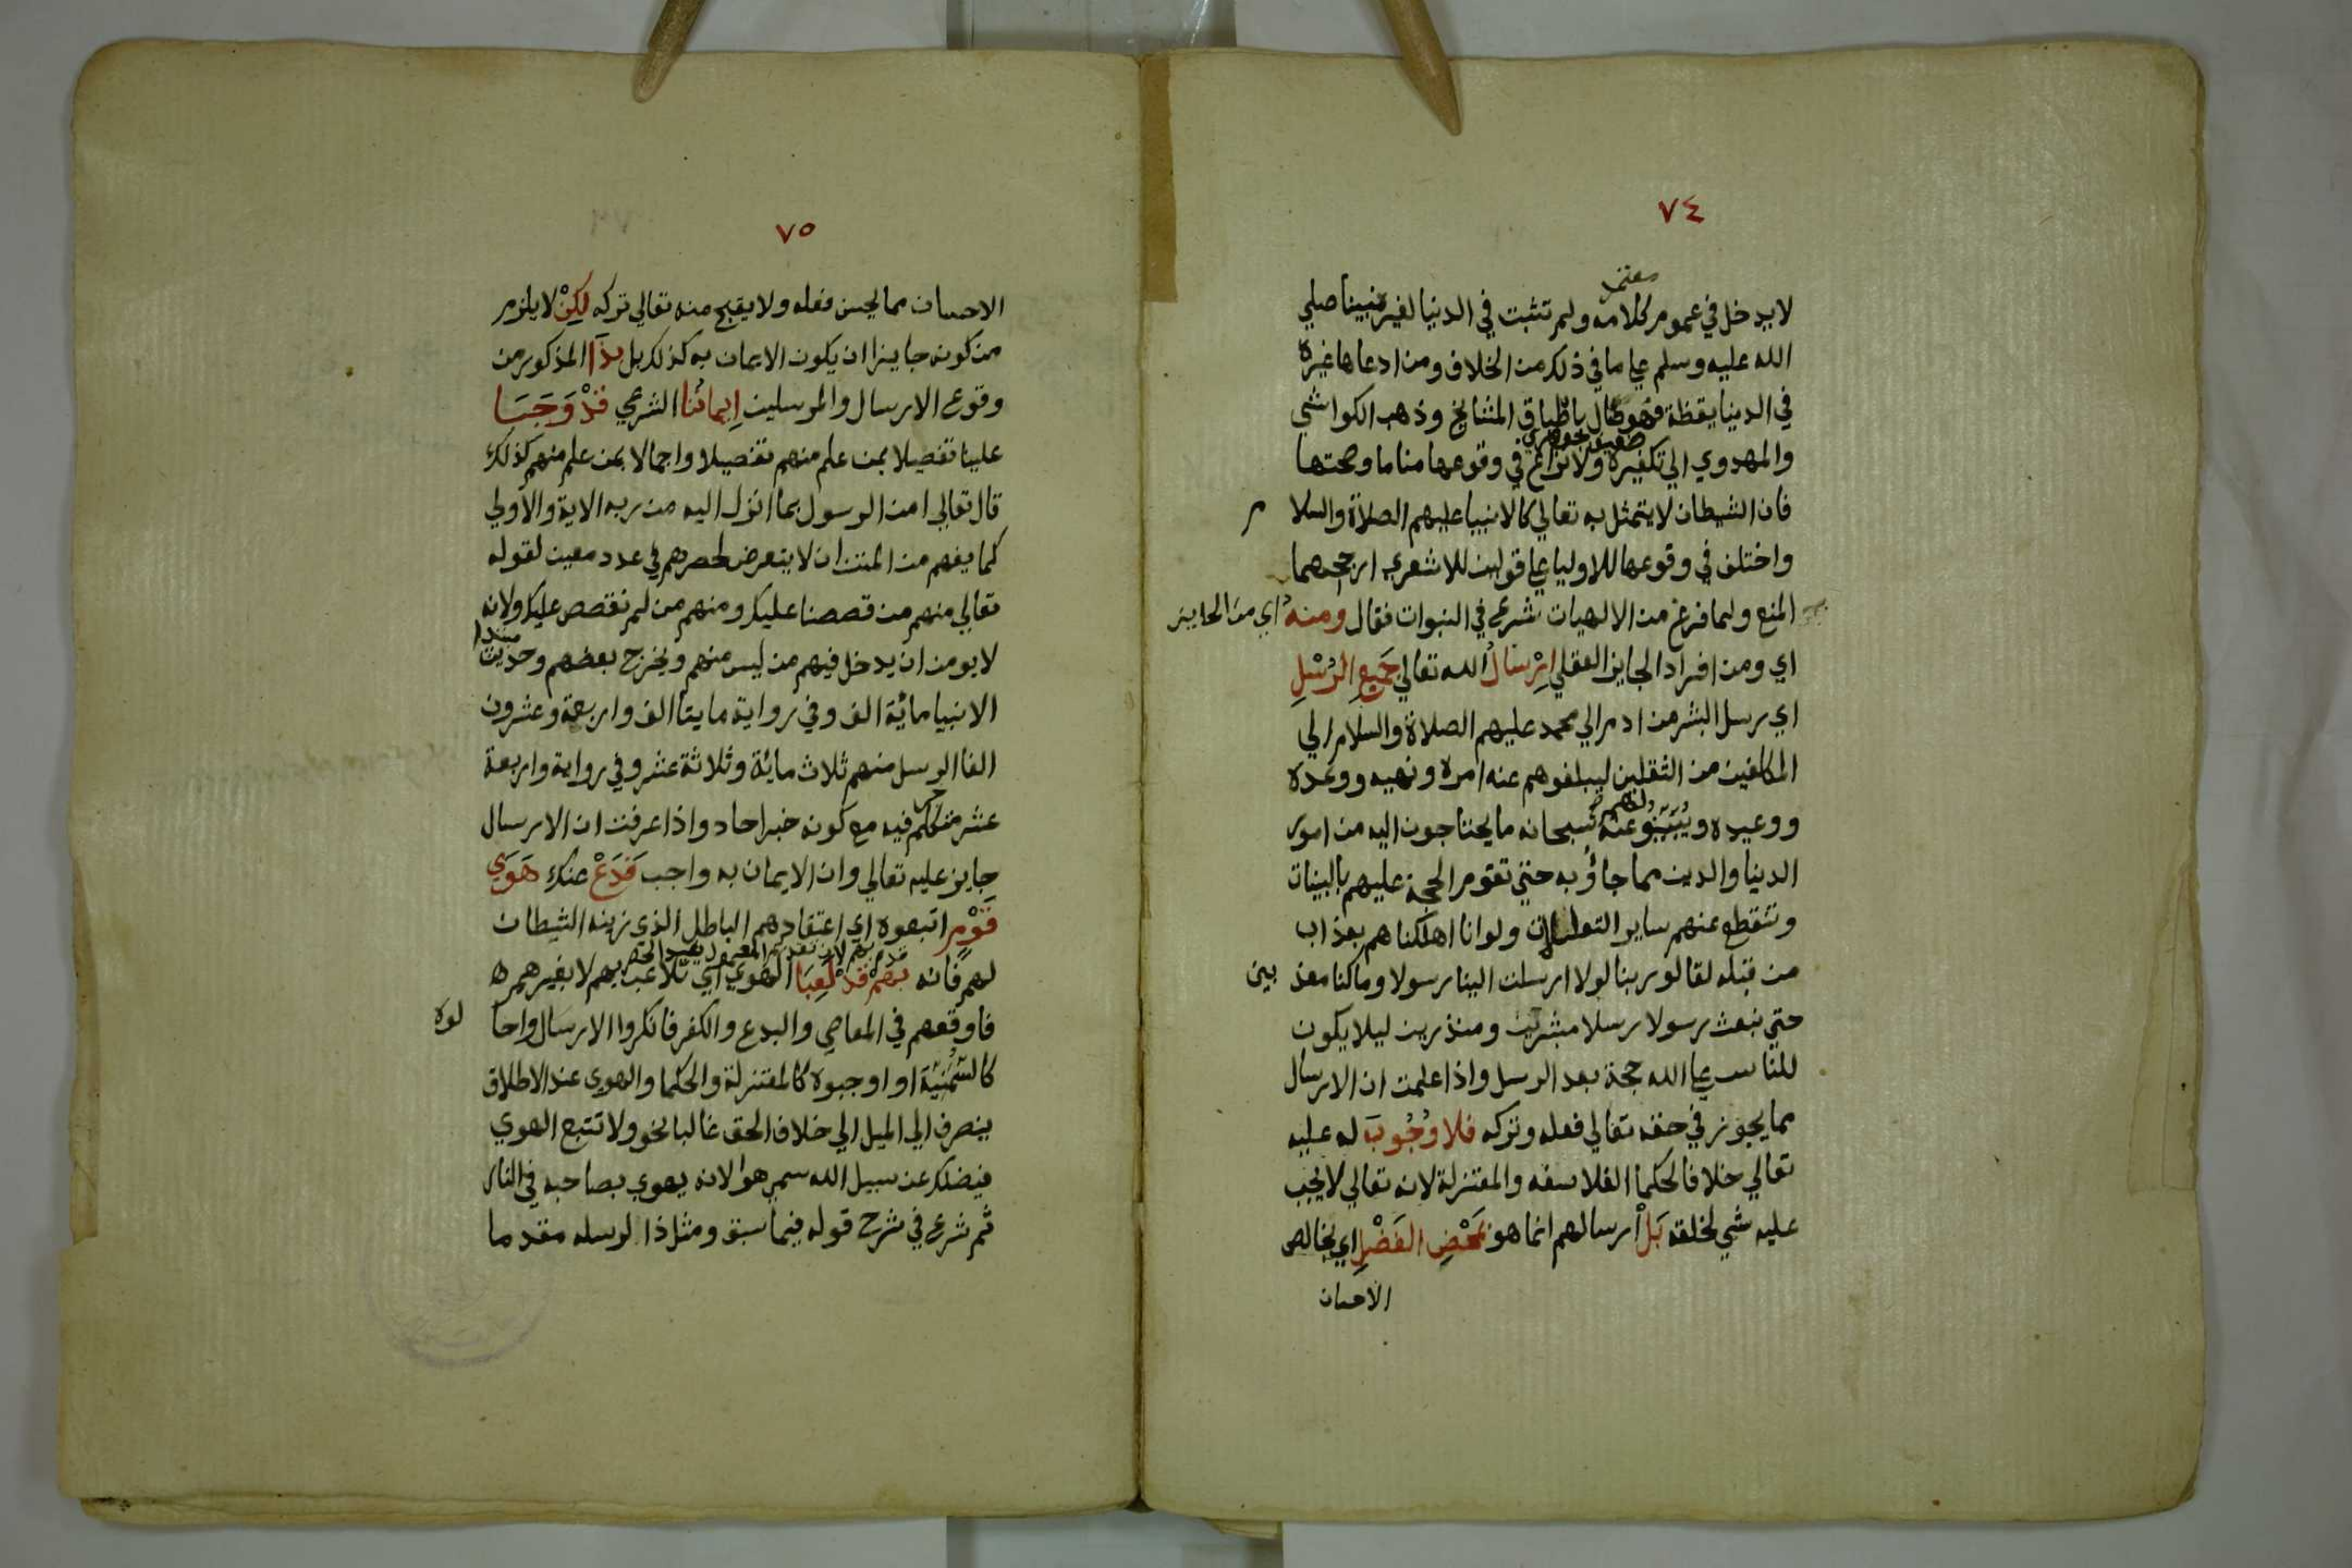 ٧٤
معتمد
لايدخل في عموم كلامه ولم تثبت في الدنيا لغير نبينا صلي
الله عليه وسلم علي ما في ذلك من الخلاف ومن ادعاها غيره
في الدنيا يقظة فهو ضال باطباق المشايخ وذهب الكواشي
والمهدوي الي تكفيره ولا نزاع في وقوعها مناما وصحتها
فان الشيطان لا يتمثل به تعالي كالانبيا عليهم الصلاة والسلا م
واختلف في وقوعها للاوليا علي قولين للاشعري ارجحهما
المنع ولما فرغ من الالهيات شرع في النبوات فقال ومنه اي من الجايز
اي ومن افراد الجايز العقلي اِرْسَالُ الله تعالي جَمِيعِ الرُسْلِ
اي رسل البشر من ادم الي محمد عليهم الصلاة والسلام الي
المكلفين من الثقلين ليبلغوهم عنه امره ونهيه ووعده
لهم
ووعيده ويُبَيِّنُو عنه سبحانه ما يحتاجون اليه من امور
الدنيا والدين مما جاؤ به حتي تقوم الحجة عليهم بالبينات
وتنقطع عنهم ساير التعللات ولو انا اهلكناهم بعذاب
من قبله لقالو ربنا لولا ارسلت الينا رسولا وما كنا معذ بين
حتي نبعث رسولا رسلا مبشرين ومنذرين ليلا يكون
للناس علي الله حجة بعد الرسل واذا علمت ان الارسال
مما يجوز في حقه تعالي فعله وتركه فلا وُجُوبَ له عليه
تعالي خلافا لحكما الفلاسفه والمعتزلة لانه تعالي لا يجب
عليه شي لخلقه بَلْ ارسالهم انما هو بِمَحْضِ الفَضْلِ اي بخالص
الاحسان
٧٥
الاحسان مما يحسن فعله ولا يقبح منه تعالي تركه لكِنْ لا يلزم
من كونه جايزا ان يكون الايمان به كذلك بل بذَا المذكور من
وقوع الارسال والمرسلين اِيمانُنا الشرعي قَدْ وَجَبَا
علينا تفصيلا بمن علم منهم تفصيلا واجمالا بمن علم منهم كذلك
قال تعالي امن الرسول بما انزل اليه من ربه الاية والاولي
كما يفهم من المتن ان لا يتعرض لحصرهم في عدد معين لقوله
تعالي منهم من قصصنا عليك ومنهم من لم نقصص عليك ولانه
لا يومن ان يدخل فيهم من ليس منهم ويخرج بعضهم وحديث
مبتدا
الانبيا مائة الف وفي رواية مايتا الف واربعة وعشرون
الفا الرسل منهم ثلاث مائة وثلاثة عشر وفي رواية واربعة
عشر متكلم فيه مع كونه خبر احاد واذا عرفت ان الارسال
جايز عليه تعالي وان الايمان به واجب فَدَعْ عنك هَوَي
قَوْمٍ اتبعوه اي اعتقادهم الباطل الذي زينه الشيطان
لهم فانه بِهِمْ قَدْ لَعِبَا الهوي اي تلاعب بهم لا بغيرهم
فاوقعهم في المعاصي والبدع والكفر فانكروا الارسال واحا لوه
كالسُمَنِيَّة او اوجبوه كالمعتزلة والحكما والهوي عند الاطلاق
ينصرف الي الميل الي خلاف الحق غالبا نحو ولا تتبع الهوي
فيضلك عن سبيل الله سمي هوا لانه يهوي بصاحبه في النار
ثم شرع في شرح قوله فيما سبق ومثل ذا لرسله مقدما